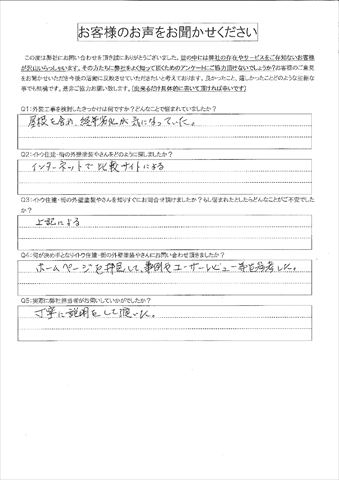 お客様のお声をお聞かせください
この度は弊社にお問い合わせを頂き誠にありがとうございました。世の中には弊社の存在やサービスをご存知ないお客様
が沢山いらっしゃいます。その方たちに弊社をよく知って頂くためのアンケートにご協力頂けないでしょうか?お客様のご意見
をお聞かせいただき今後の活動に反映させていただきたいと考えております。良かったこと、嬉しかったことどのような些細な
事でも結構です。是非ご協力お願い致します。【出来るだけ具体的に書いて頂ければ幸いです】
Q1:外装工事を検討したきっかけは何ですか?どんなことで悩まれていましたか?
屋根を含め、経年劣化が気になっていた。
Q2:イトウ住建・街の外壁塗装やさんをどのように探しましたか?
インターネットで比較サイトによる
Q3:イトウ住建・街の外壁塗装やさんを知りすぐにお問合せ頂けましたか?もし悩まれたとしたらどんなことがご不安でした
か?
上記による
Q4:何が決め手となりイトウ住建・街の外壁塗装やさんにお問い合わせ頂きましたか?
ホームページを拝見して、事例やユーザーレビュー等を参考した。
Q5:実際に弊社担当者がお伺いしていかがでしたか?
丁寧に説明をして頂いた。